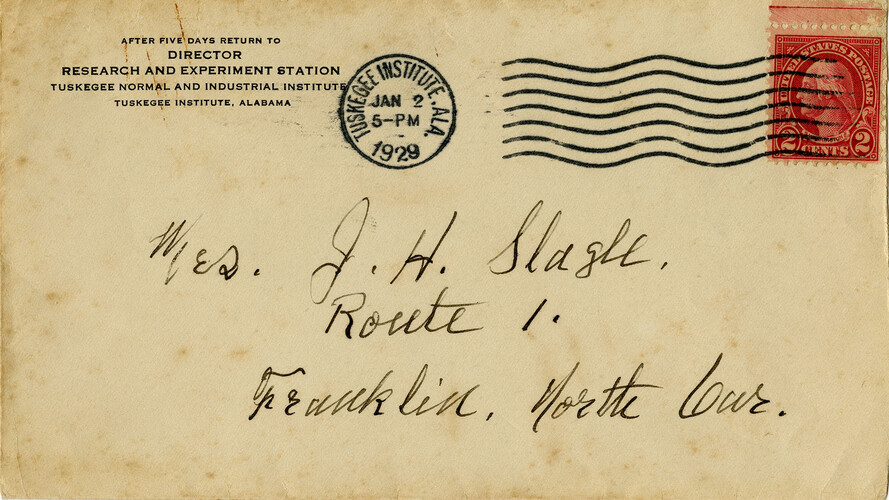 AFTER FIVE DAYS RETURN TO
DIRECTOR
RESEARCH AND EXPERIMENT STATION
TUSKEGEE NORMAL AND INDUSTRIAL INSTITUTE
TUSKEGEE INSTITUTE, ALABAMA
TUSKEGEE INSTITUTE, ALA.
JAN 2
5-PM
1929
UNITED STATES POSTAGE
2 CENTS 2
Mrs. J. H. Slagle,
Route 1.
Franklin, North Car.